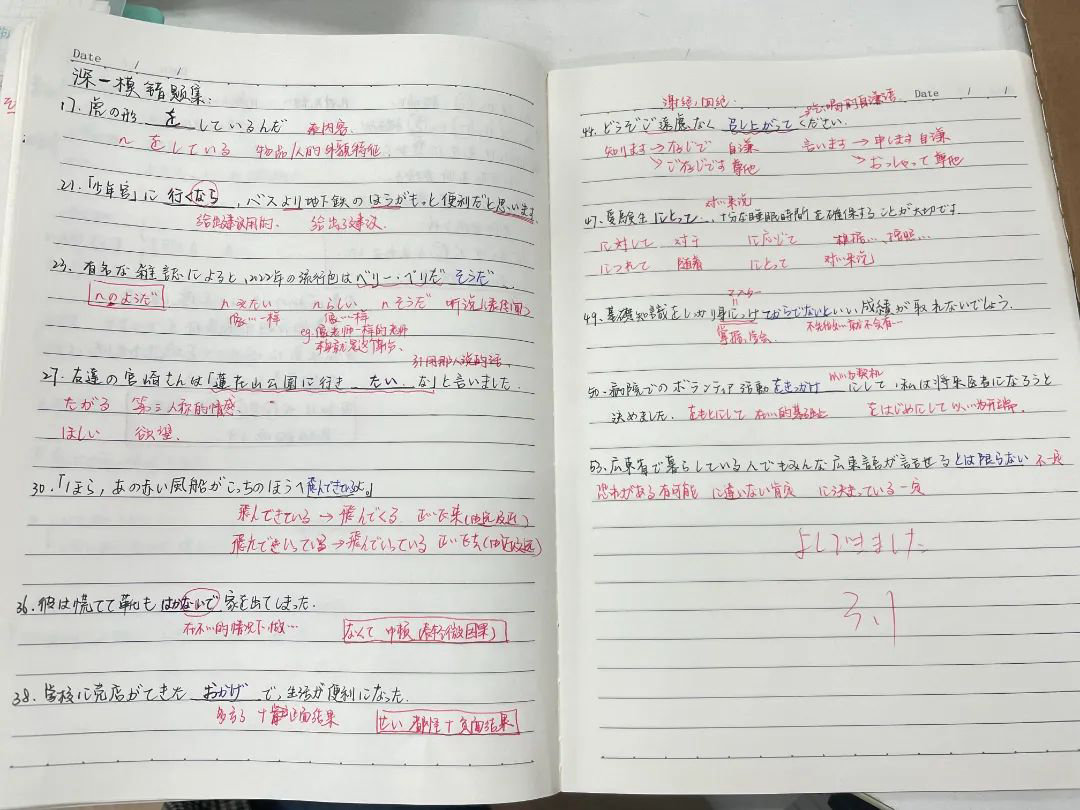 Date / /
深一模 错题集:
17. 虎の形 を しているんだ 表内容.
n をしている 物品/人的外貌特征.
21.「少年宮」に 行くなら, バスより地下鉄のほうがもっと便利だと思います.
给出建议用的. 给出了建议.
23. 有名な雑誌によると,2022年の流行色はベリー・ペリだ そうだ
nのようだ n みたい n らしい n そうだ 听说(表传闻)
像…一样 像…一样
eg.像老师一样的老师
本身就是这个身份.
引用别人说的话.
27. 友達の宮崎さんは「蓮花山公園に行き たい な」と言いました.
たがる 第三人称的情感.
ほしい 欲望.
30.「ほら, あの赤い風船がこっちのほうへ飛んできているよ。」
飛んできている → 飛んでくる 正飞来(由远及近)
飛んでいっている → 飛んでいっている 正飞去(由近及远)
36. 彼は慌てて靴も はかないで 家を出てしまった.
在不…的情况下做…
なくて 中顿(表轻微因果)
38. 学校に売店ができた おかげ で,生活が便利になった.
多亏了 + 正面结果 せい 都怪 + 负面结果
谢绝/回绝. 吃/喝的自谦语 Date / /
44. どうぞご遠慮なく 召し上がって ください.
知ります→存じで 自謙 言います → 申します 自谦
↘ご存じです 尊他 ↘おっしゃって 尊他
对…来说
47. 受験生 にとって , 十分な睡眠時間を確保することが大切です.
に対して 对于 に応じて 根据…, 按照…
につれて 随着 にとって 对…来说
マスター
49. 基礎知識をしっかり身につけてからでないといい成績が取れないでしょう.
掌握,学会. 不先…就不会有…
以…为契机
50. 病院でのボランティア活動をきっかけ にして,私は将来医者になろうと
決めました. をもとにして 在…的基础上 をはじめにして 以…为开端.
53. 広東省で暮らしている人でもみんな広東語が話せるとは限らない 不一定
恐れがある 有可能 に違いない 肯定 に決まっている 一定
よくできました
3.1